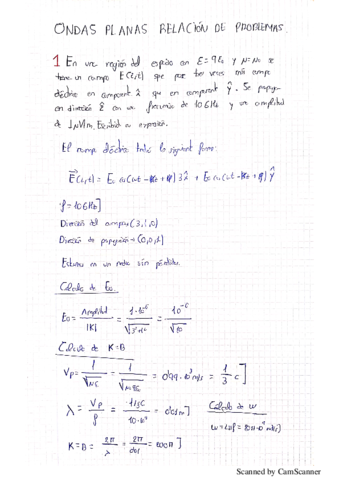 ONDAS PLANAS RELACIÓN DE PROBLEMAS.
1 En una región del espacio en ε=9ε₀ y μ=μ₀ se
tiene un campo E(z,t) que por tres veces más campo
eléctrico en component x̂ que en component ŷ. Se propaga
en dirección ẑ con una frecuencia de 10GHz y una amplitud
de 1μV/m, Escribid su expresión.
El campo eléctrico tendrá la siguiente forma:
E(z,t) = E₀ cos(ωt-kz+φ) 3x̂ + E₀ cos(ωt-kz+φ) ŷ
f=10GHz]
Dirección del campo→(3,1,0)
Dirección de propagación→(0,0,1)
Estamos en un medio sin pérdidas.
Cálculo de E₀.
E₀ = Amplitud / |K| = 1·10⁻⁶ / √3²+1² = 10⁻⁶ / √10
Cálculo de K=B
Vp = 1 / √με = 1 / √μ₀9ε₀ = 0'99·10⁸ m/s = 1/3 c]
λ = Vp / f = 1/3C / 10·10⁹ = 0'01m]
Cálculo de ω
K=B = 2π / λ = 2π / 0'01 = 200π]
Scanned by CamScanner